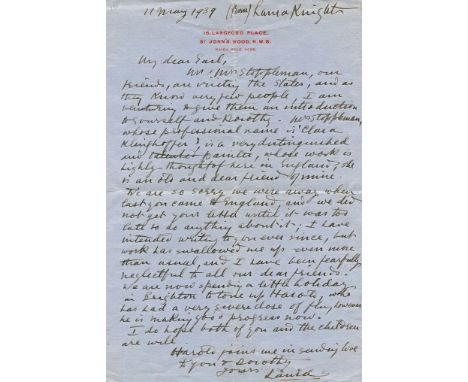 11 May 1939 (From) Laura Knight
16, LANGFORD PLACE,
ST JOHN'S WOOD, N.W.8.
MAIDA VALE
My dear Earl,
Mr & Mrs Stoppleman, our
friends, are visiting the States, and as
they know very few people, I am
venturing to give them an introduction
to yourself and Dorothy. Mrs Stoppleman,
whose professional name is 'Clara
Klinghoffer', is a very distinguished
and talented painter, whose work is
highly thought of here in England; she
is an old and dear friend of mine.
We are so sorry we were away when
last you came to England, and we did
not get your letter until it was too
late to do anything about it; I have
intended writing to you ever since, but
work has swallowed me up even more
than usual, and I have been fearfully
neglectful to all our dear friends.
We are now spending a little holiday
in Brighton to tone up Harold, who
has had a very severe dose of flu, however
he is making good progress now.
I do hope both of you and the children
are well
Harold joins me in sending love
to you & Dorothy
Yours
Laura